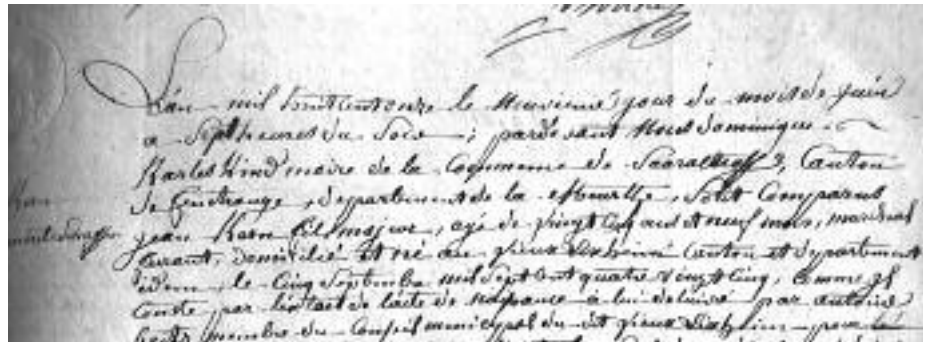 L'an mil huit cent onze le neuvieme jour du mois de juin
a sept heures du Soir ; pardevant Nous dominique
Karleskind maire de la Commune de Saaraltroff, Canton
de fenetrange, departement de la Meurthe, Sont Comparus
jean Kern fils majeur, agé de vingt Cinq ans et neuf mois, marechal
ferant, domicilié et né au vieux Canton et departement
idem, le Cinq Septembre mil Sept Cent quatre vingt Cinq, comme il
Conste par l'extrait de l'acte de Naissance à lui delivré par antoine
membre du Conseil municipal du dit vieux pour le